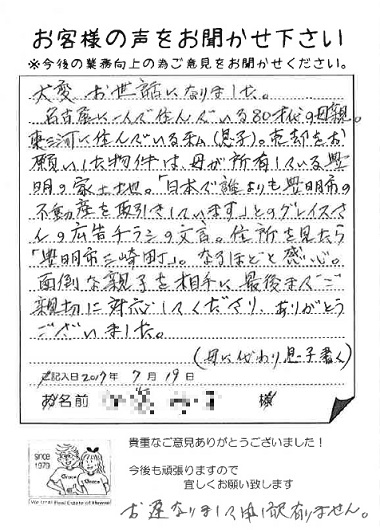 お客様の声をお聞かせ下さい
※今後の業務向上の為ご意見をお聞かせください。
大変お世話になりました。
名古屋に一人で住んでいる80才代の母親。
東三河に住んでいる私(息子)。売却をお
願いした物件は、母が所有している豊
明の家と土地。「日本で誰よりも豊明市の
不動産を取引きしています」とのグレイスさ
んの広告チラシの文言。住所を見たら
「豊明市三崎町」。なるほどと感心。
面倒な親子を相手に最後までご
親切に対応してくださり、ありがとう
ございました。
(母に代わり息子書く)
記入日2017年 7月 19日
お名前 様
貴重なご意見ありがとうございました!
今後も頑張りますので
宜しくお願い致します
since 1979
Grace
Grace
We love Real Estate of
お遅なりまして申し訳ありません。